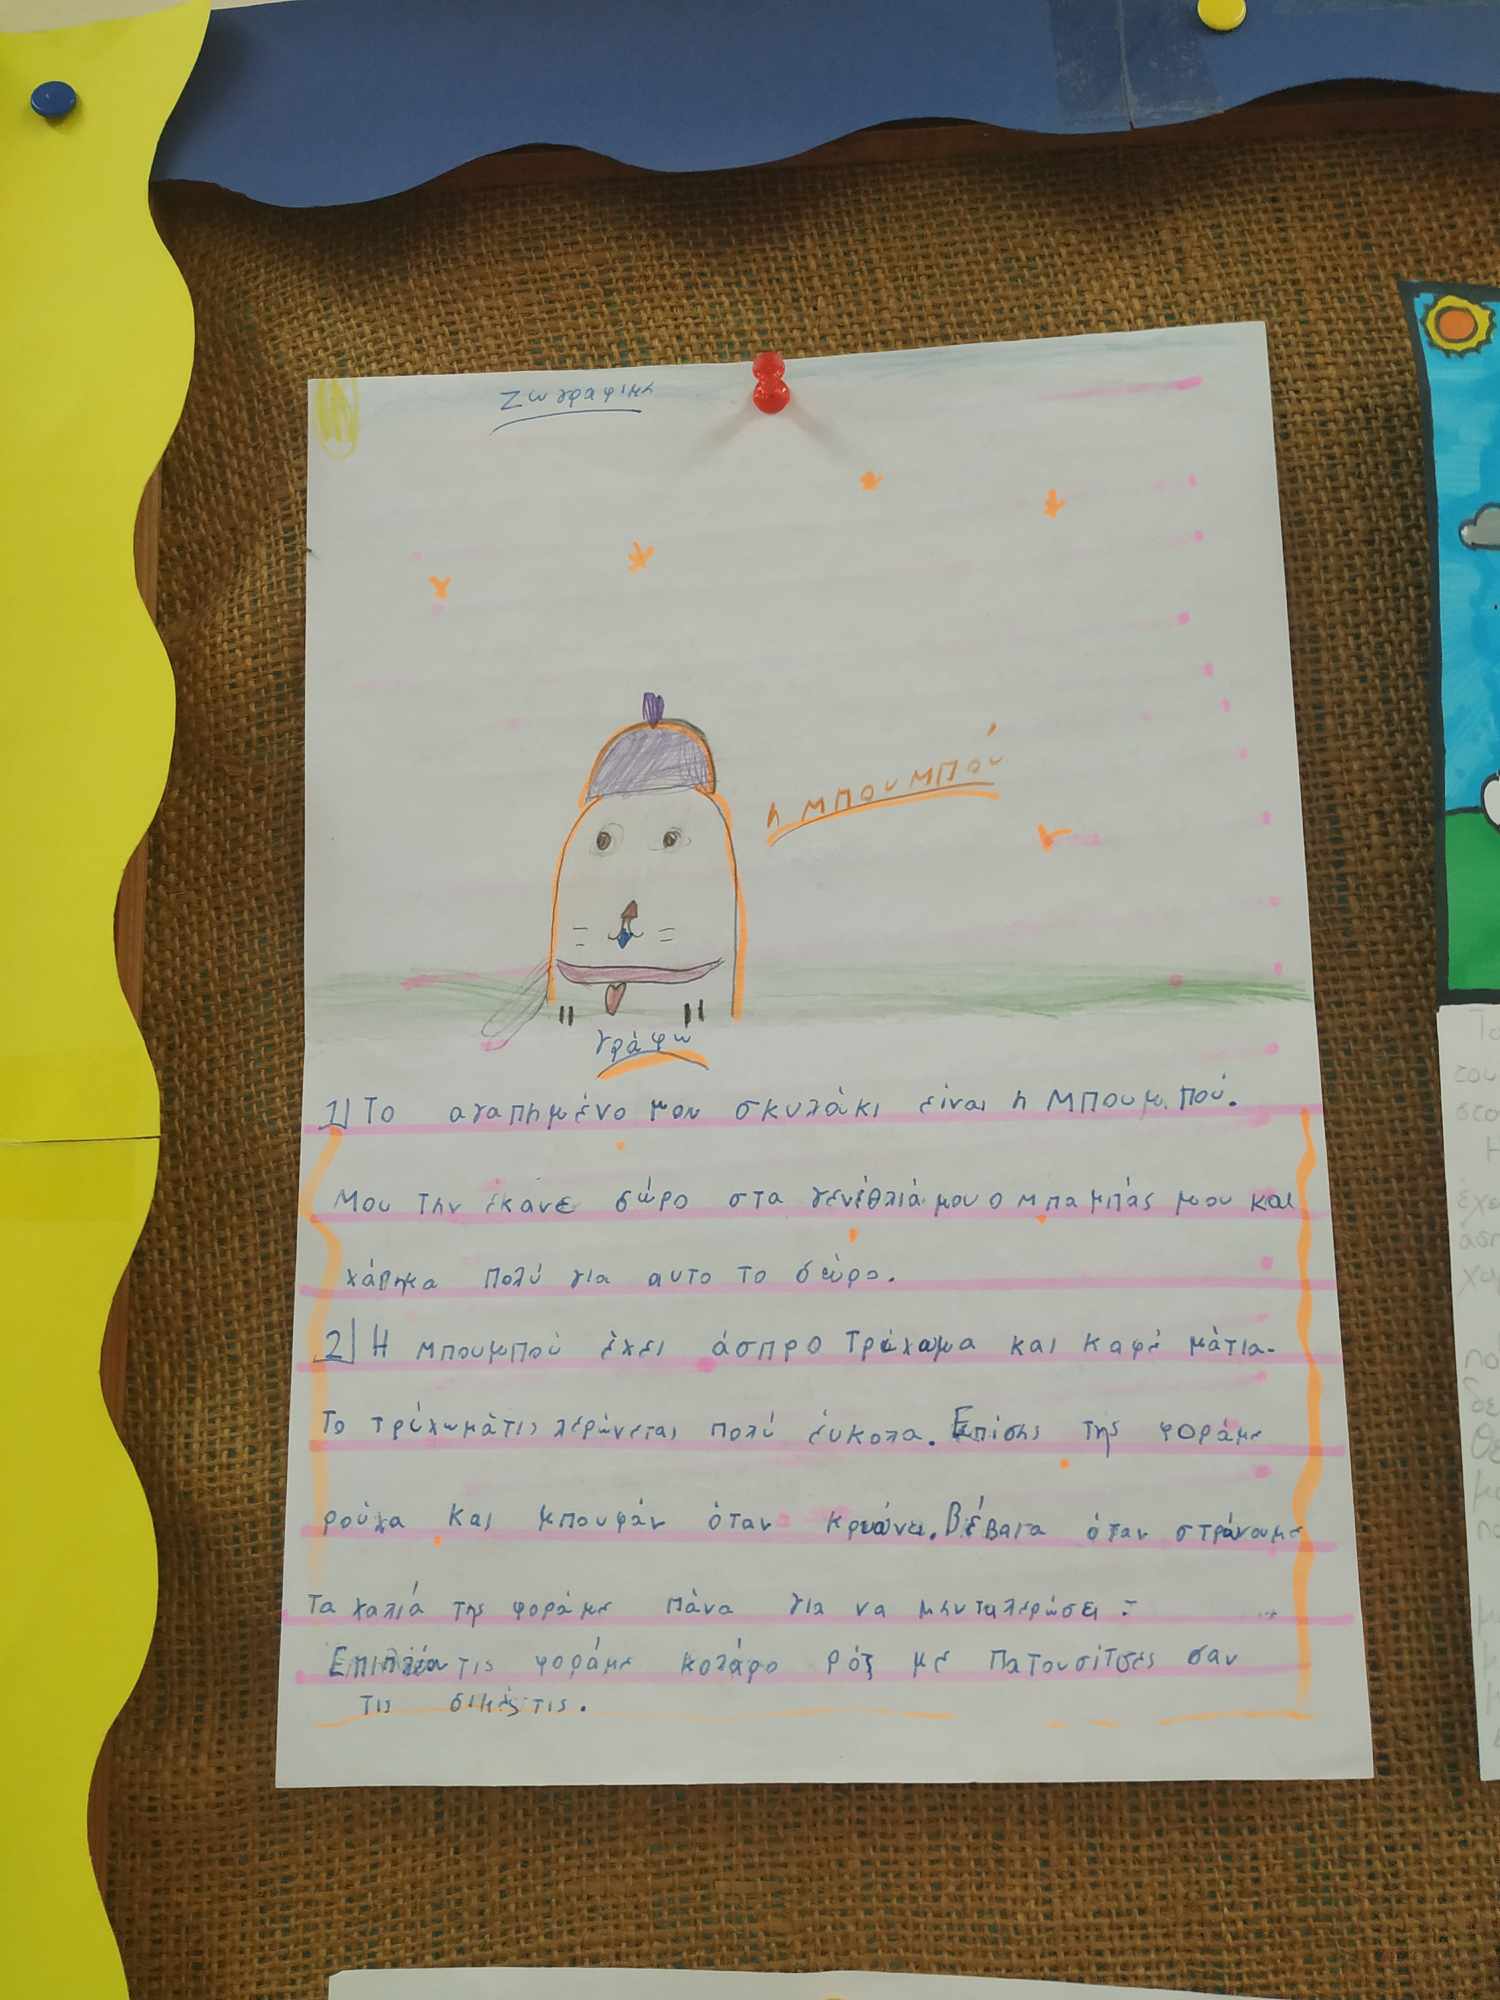 Ζωγραφικη
η μπουμπού
γράφω
1) Το αγαπημένο μου σκυλάκι είναι η Μπουμπού.
Μου την έκανε δώρο στα γενέθλιά μου ο μπαμπάς μου και
χάρηκα πολύ για αυτο το δώρο.
2) Η μπουμπού έχει άσπρο τρίχωμα και καφέ μάτια.
Το τρίχωμάτις λερώνεται πολύ έυκολα. Επίσης της φοράμε
ρούχα και μπουφάν όταν κρυώνει. Βέβαια όταν στρώνουμε
τα χαλιά της φοράμε πάνα για να μηνταλερώσει.
Επιπλέον τις φοράμε κολάρο ρόζ με πατουσίτσες σαν
τις δικές τις.
Το
του
στο
Η
έχε
ασπ
χω